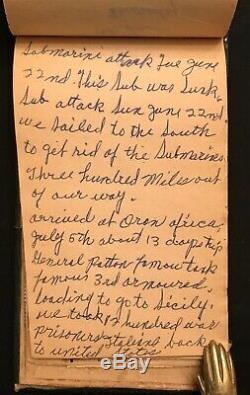 Submarini attack Tue June
22nd. This Sub was Sunk.
Sub attack Sun June 22nd
we sailed to the South
to get rid of the Submarines
Three hundred Miles out
of our way.
arrived at Oron africa,
July 5th about 13 days trip
General Patton famow task
famous 3rd armoured.
loading to go to Sicily.
we took 12 hundred war
prisoners back
to united States